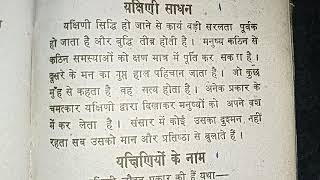 यक्षिणी साधन
यक्षिणी सिद्धि हो जाने से कार्य बड़ी सरलता पूर्वक
हो जाता है और बुद्धि तीव्र होती है । मनुष्य कठिन से
कठिन समस्याओं को क्षण मात्र में पूर्ति कर सकता है ।
दूसरे के मन का गुप्त हाल पहिचान जाता है । जो कुछ
मुँह से कहता है वह सत्य होता है । अनेक प्रकार के
चमत्कार यक्षिणी द्वारा दिखाकर मनुष्यों को अपने वश
में कर लेता है । संसार में कोई उसका दुश्मन नहीं
रहता सब उसको मान और प्रतिष्ठा से बुलाते हैं ।
यक्षिणियों के नाम
प्रकार की हैं यथा—